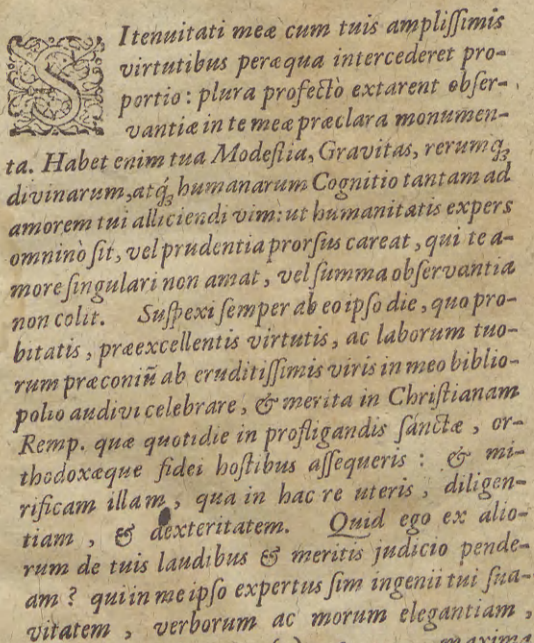 SI tenuitati meæ cum tuis ampliſſimis
virtutibus peræqua intercederet pro-
portio : plura profectò extarent obſer-
vantiæ in te meæ præclara monumen-
ta. Habet enim tua Modeſtia, Gravitas, rerumq́ꝫ
divinarum, atq́ꝫ humanarum Cognitio tantam ad
amorem tui alliciendi vim: ut humanitatis expers
omninò ſit, vel prudentia prorſus careat, qui te a-
more ſingulari non amat, vel ſumma obſervantia
non colit. Suſpexi ſemper ab eo ipſo die, quo pro-
bitatis, præexcellentis virtutis, ac laborum tuo-
rum præconiũ ab eruditiſſimis viris in meo biblio-
polio audivi celebrare, & merita in Chriſtianam
Remp. quæ quotidie in profligandis ſanctæ, or-
thodoxæque fidei hoſtibus aſſequeris : & mi-
rificam illam, qua in hac re uteris, diligen-
tiam, & dexteritatem. Quid ego ex alio-
rum de tuis laudibus & meritis judicio pende-
am ? qui in me ipſo expertus ſim ingenii tui ſua-
vitatem, verborum ac morum elegantiam,
maxima